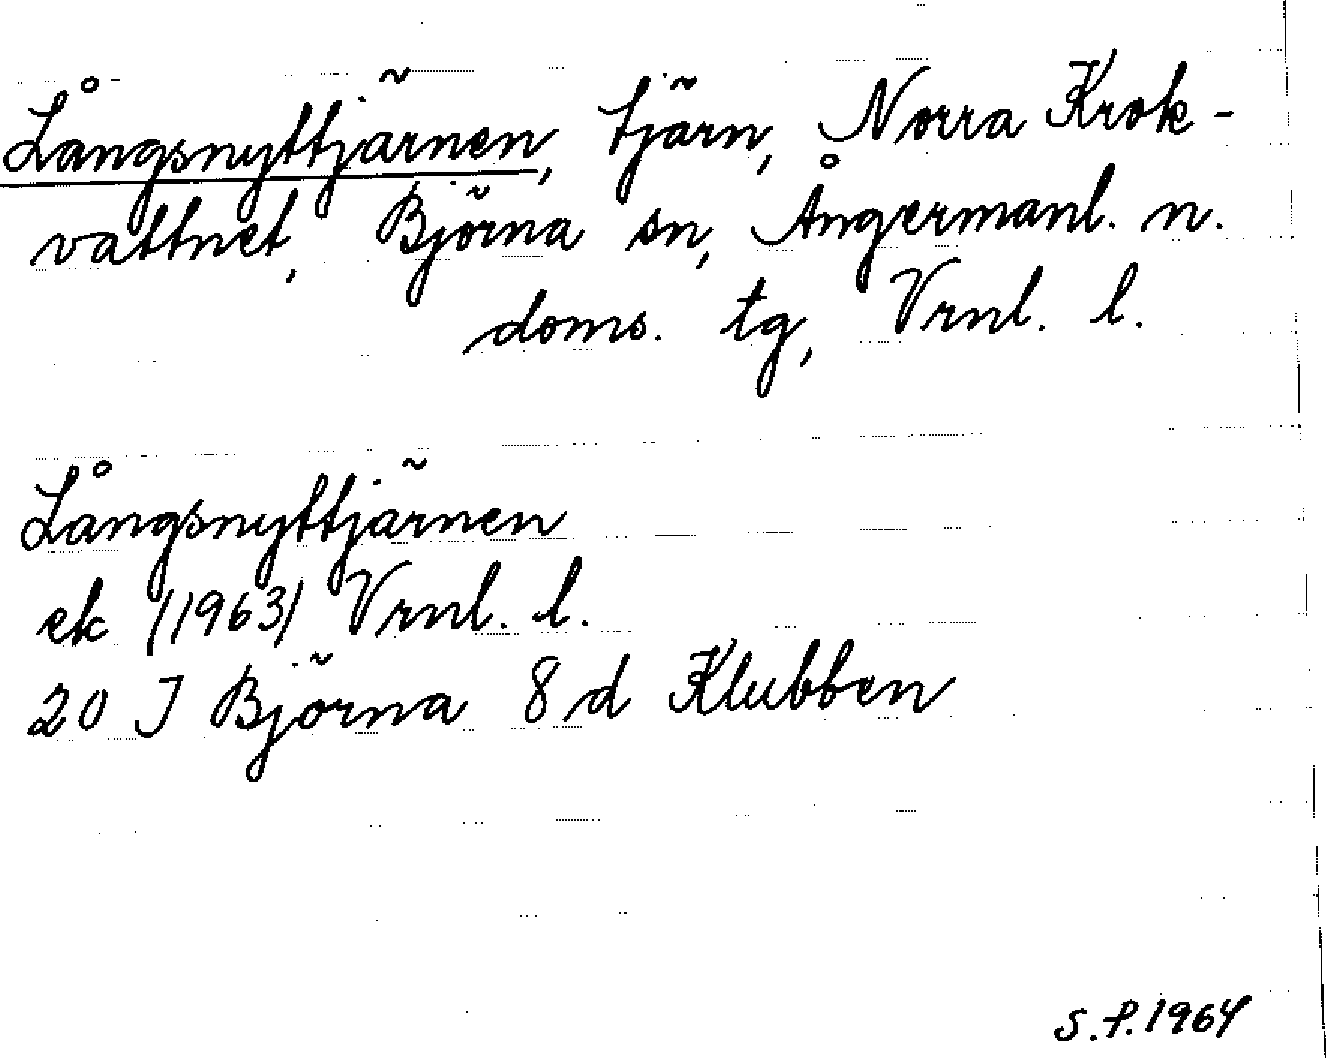 Långsnyttjärnen, tjärn, Norra Krok-
vattnet, Björna sn, Ångermanl. n.
doms. tg, Vrnl. l.
Långsnyttjärnen
ek (1963) Vrnl. l.
20 J Björna 8 d Klubben
S.P. 1964